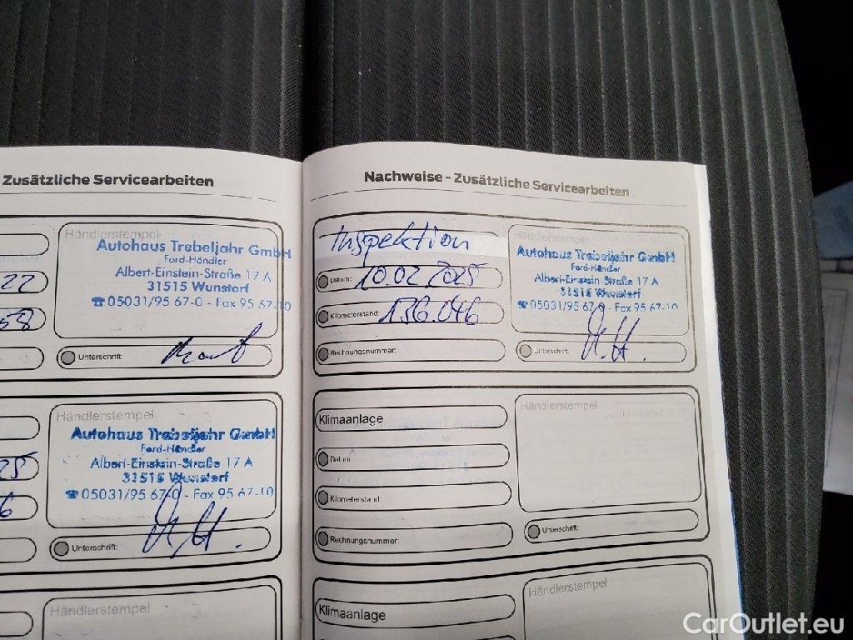 Zusätzliche Servicearbeiten
Händlerstempel
Autohaus Trebeljahr GmbH
Ford-Händler
Albert-Einstein-Straße 17 A
31515 Wunstorf
☎05031/95 67-0 - Fax 95 67-10
22
58
Unterschrift:
Händlerstempel
Autohaus Trebeljahr GmbH
Ford-Händler
Albert-Einstein-Straße 17 A
31515 Wunstorf
☎05031/95 67-0 - Fax 95 67-10
25
6
Unterschrift:
Händlerstempel
Nachweise - Zusätzliche Servicearbeiten
Inspektion
Datum: 10.02.2025
Kilometerstand: 136.046
Rechnungsnummer:
Händlerstempel
Autohaus Trebeljahr GmbH
Ford-Händler
Albert-Einstein-Straße 17 A
31515 Wunstorf
☎05031/95 67-0 - Fax 95 67-10
Unterschrift:
Klimaanlage
Datum:
Kilometerstand:
Rechnungsnummer:
Händlerstempel
Unterschrift:
Klimaanlage
Händlerstempel
CarOutlet.eu